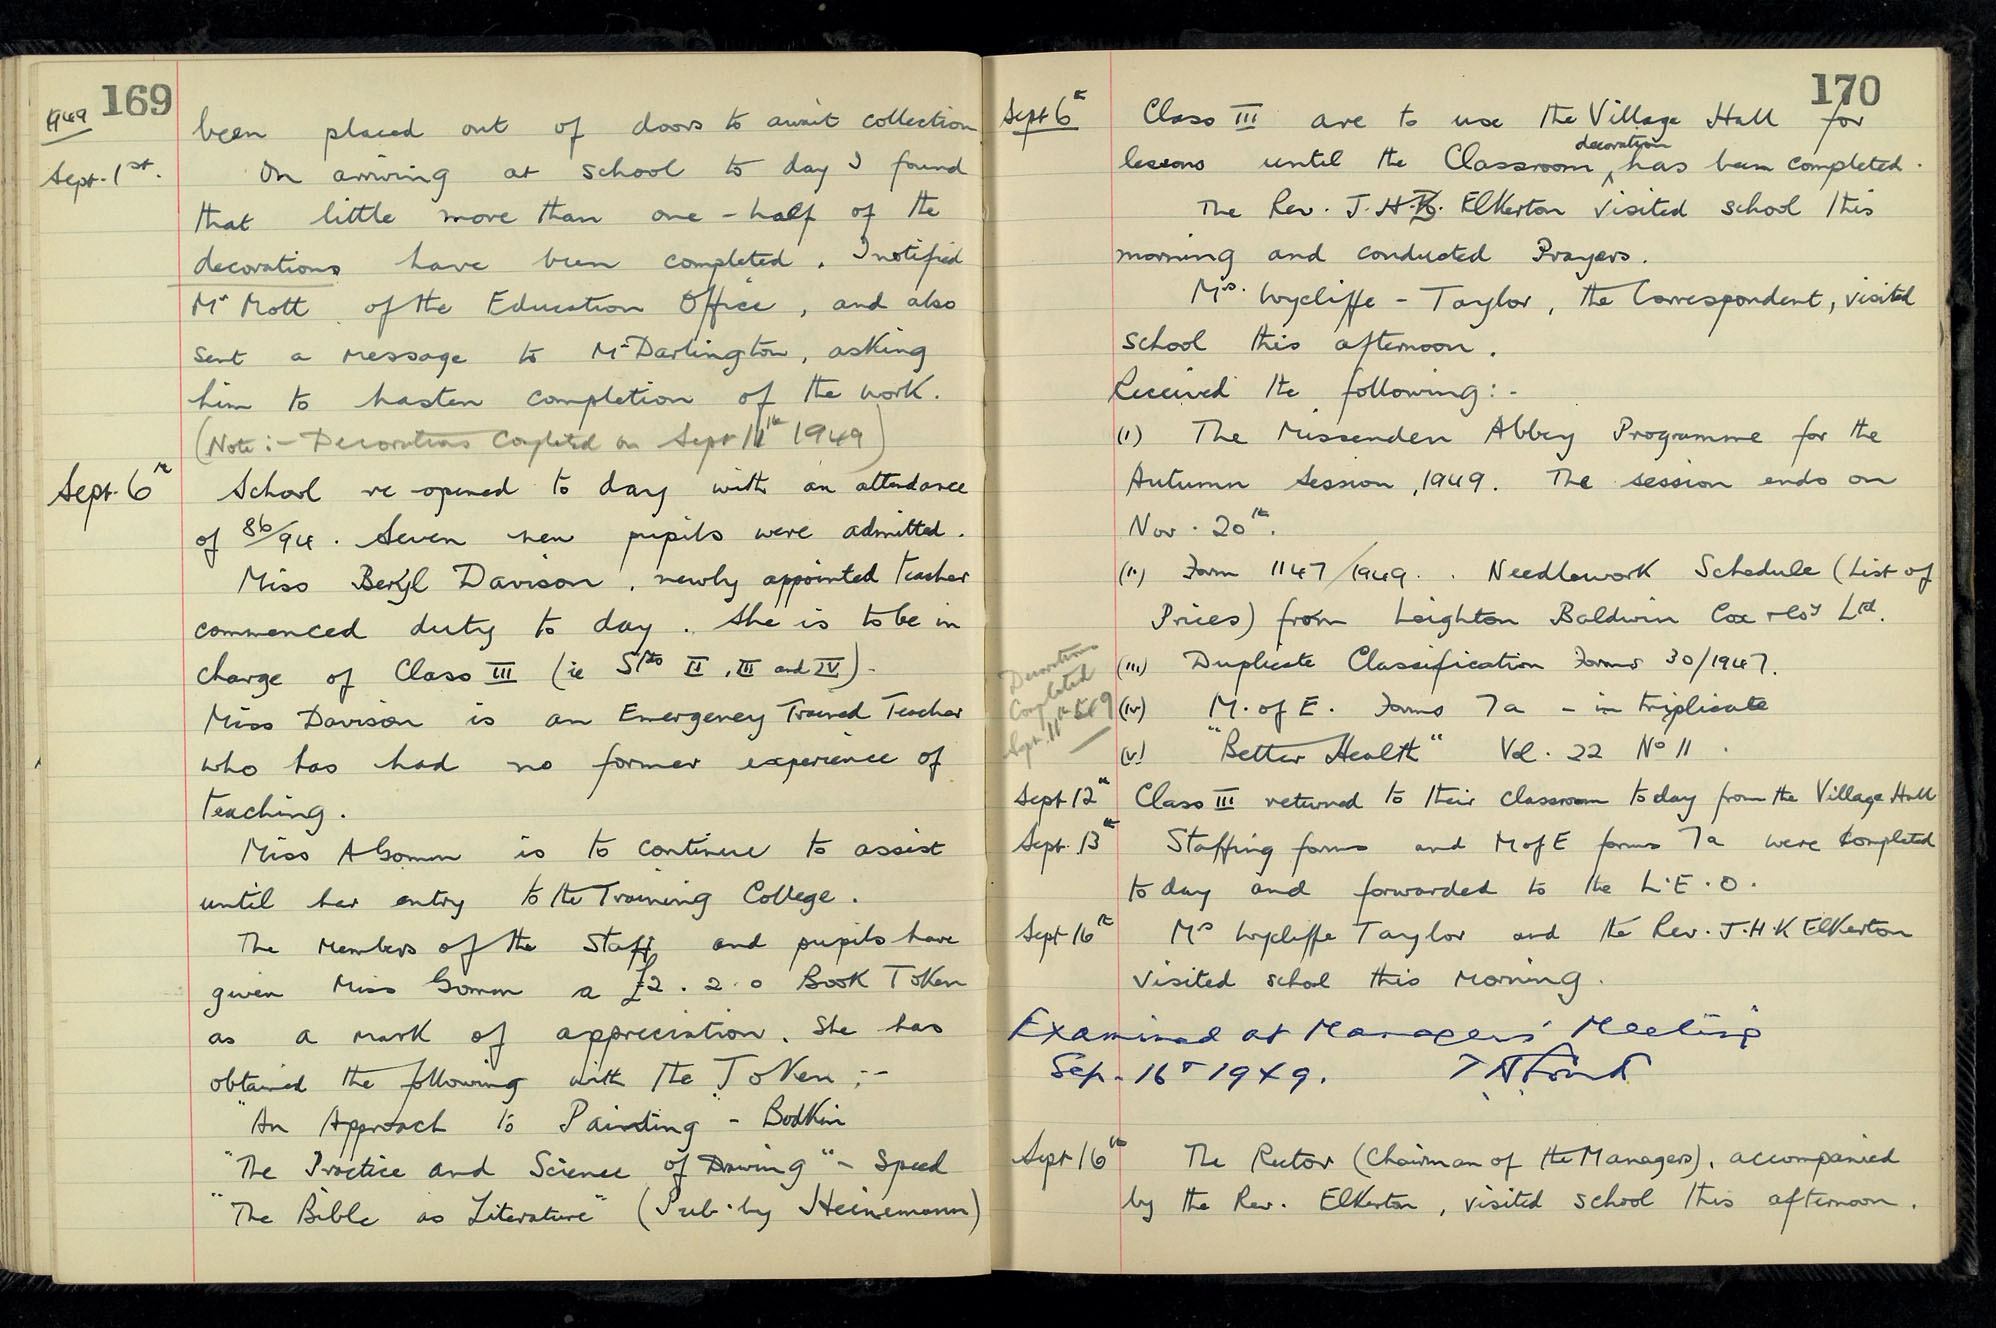 169
1949
been placed out of doors to await collection
Sept. 1st. On arriving at school to day I found
that little more than one-half of the
decorations have been completed. I notified
Mr Mott of the Education Office, and also
sent a message to Mr Darlington, asking
him to hasten completion of the work.
(Note:- Decorations Completed on Sept 11th 1949)
Sept. 6th School re-opened to day with an attendance
of 86/94. Seven new pupils were admitted.
Miss Beryl Davison, newly appointed teacher
commenced duty to day. She is to be in
charge of Class III (ie Stds II, III and IV).
Miss Davison is an Emergency Trained Teacher
who has had no former experience of
teaching.
Miss A Gomm is to continue to assist
until her entry to the Training College.
The members of the Staff and pupils have
given Miss Gomm a £2.2.0 Book Token
as a mark of appreciation. She has
obtained the following with the Token:-
"An Approach to Painting" - Bodkin
"The Practice and Science of Drawing" - Speed
"The Bible as Literature" (Pub. by Heinemann)
170
Sept 6th Class III are to use the Village Hall for
lessons until the Classroom decoration has been completed.
The Rev. J.H.K. Elkerton visited school this
morning and conducted Prayers.
Mrs. Wycliffe-Taylor, the Correspondent, visited
school this afternoon.
Received the following:-
(i) The Missenden Abbey Programme for the
Autumn Session, 1949. The session ends on
Nov. 20th.
(ii) Form 1147/1949. Needlework Schedule (List of
Prices) from Leighton Baldwin Cox & Coy Ltd.
(iii) Duplicate Classification Forms 30/1947.
(iv) M. of E. Forms 7a - in triplicate
(v) "Better Health" Vol. 22 No 11.
Decorations
Completed
Sept. 11th 1949
Sept 12th Class III returned to their classroom to day from the Village Hall
Sept. 13th Staffing forms and M of E forms 7a were completed
to day and forwarded to the L.E.O.
Sept 16th Mrs Wycliffe Taylor and the Rev. J.H.K Elkerton
visited school this morning.
Examined at Managers' Meeting
Sep. 16th 1949.
Sept 16th The Rector (Chairman of the Managers), accompanied
by the Rev. Elkerton, visited school this afternoon.